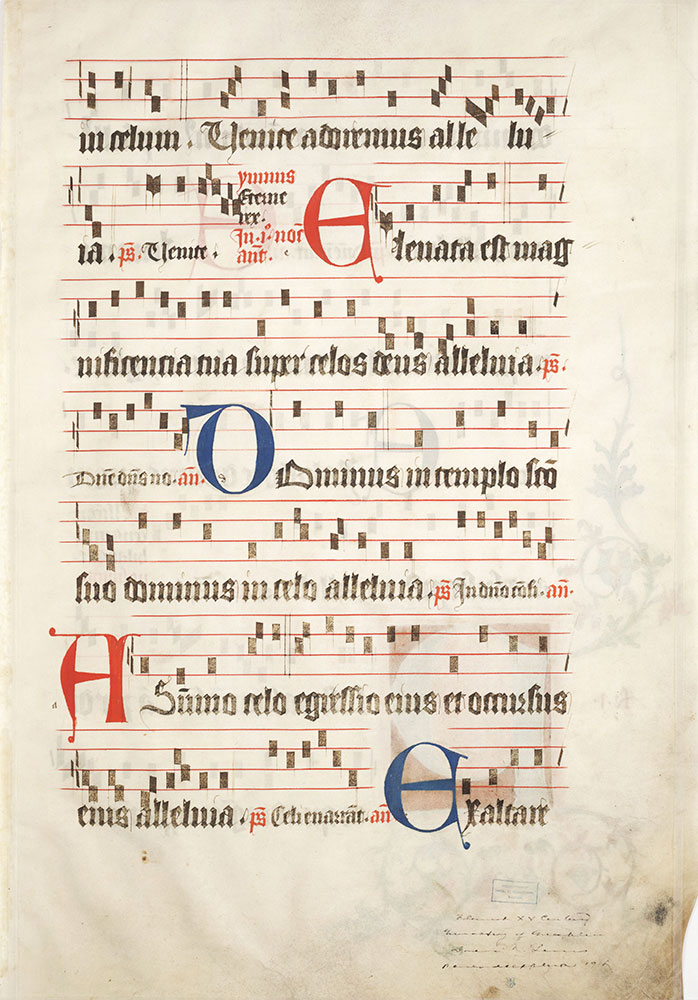 in celum . Venite adoremus alle lu
ia . ps̄. Venite .
ymnus
Eterne
rex.
In .i°. noc̄t
ant̄.
Eleuata est mag
nificencia tua super celos deus alleluia . ps̄.
Dn̄e dn̄s no . an̄.
DOminus in templo sc̄o
suo dominus in celo alleluia . ps̄ In dn̄o cōfi . an̄.
a
ASūmo celo egressio eius et occursus
eius alleluia . ps̄ Celi enarrāt . an̄
Exaltare
XV Century